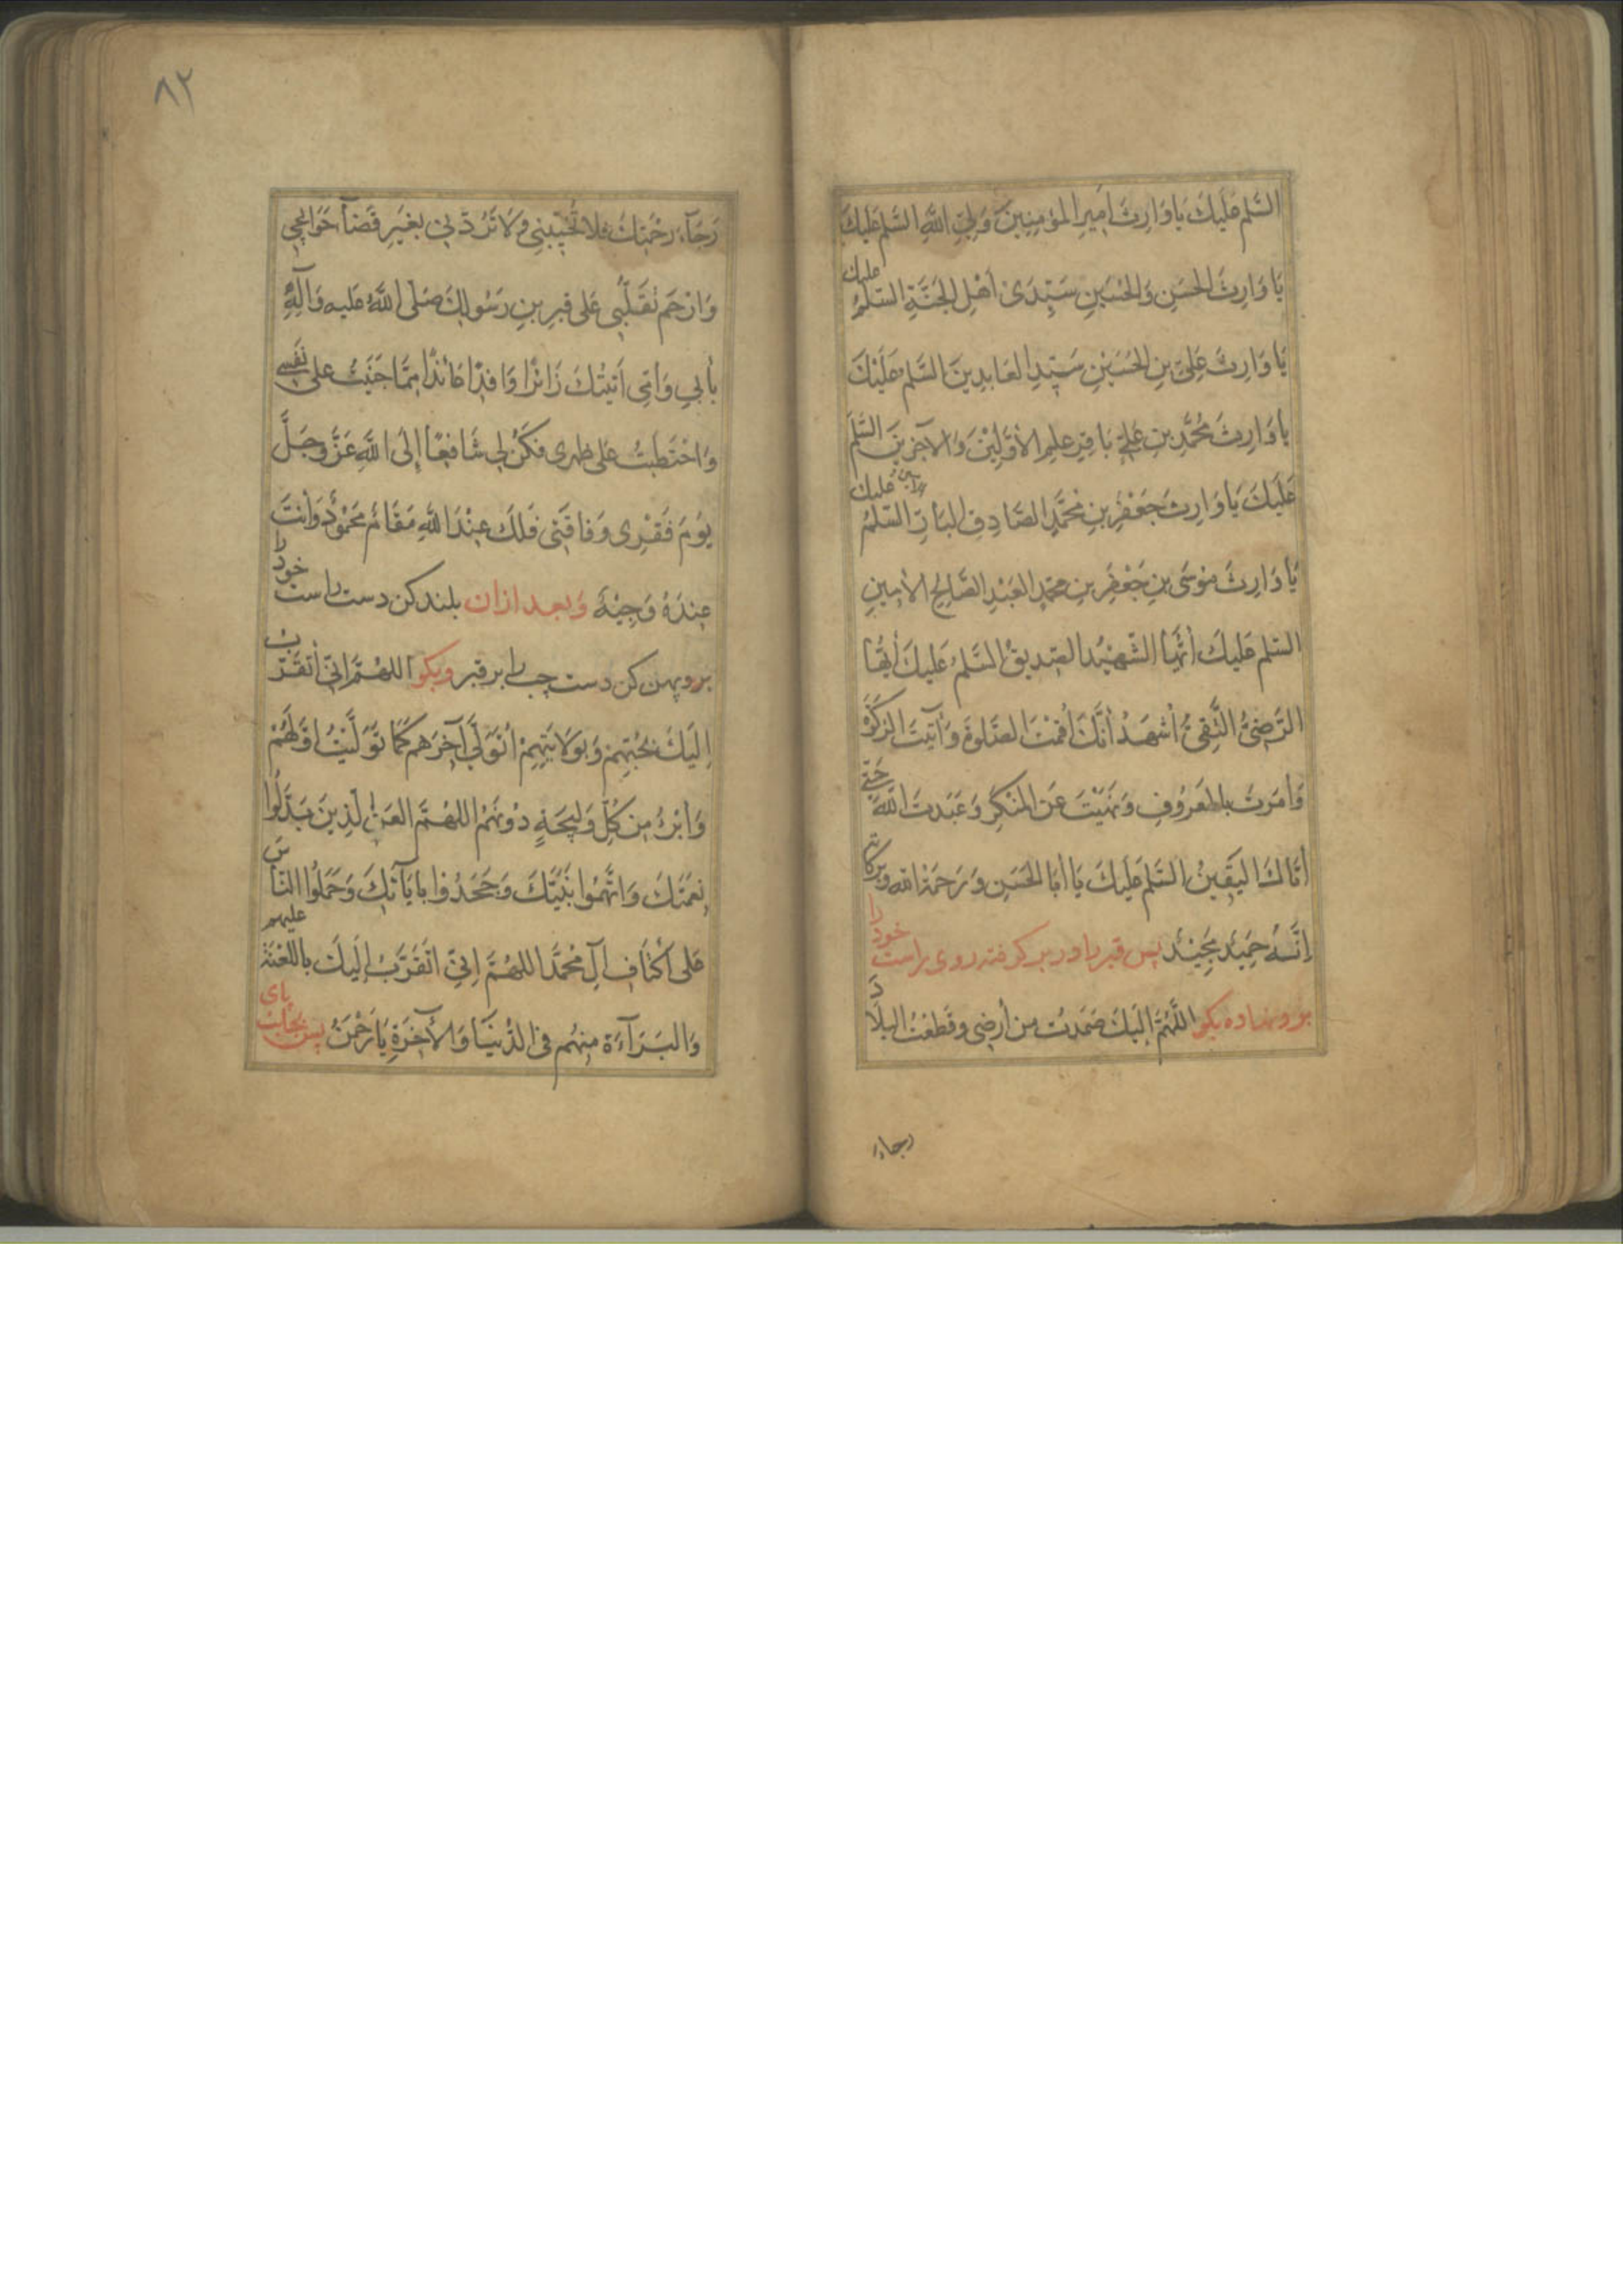 السَّلم عَليكَ يَا وَارِثَ اَميرِ المؤمِنِينَ وَلِيِّ اللهِ السَّلم عَلَيكَ
يَا وَارِثَ الحَسَنِ وَالحُسَينِ سَيِّدَىْ اَهْلِ الجَنَّةِ السَّلمُ عليك
يَا وَارِثَ عَلِيّ بنِ الحُسَيْنِ سَيِّدِ العَابِدِينَ السَّلم عَلَيْكَ
يا وَارِثَ مُحَمَّدِ بنِ عَلِيّ بَاقِرِ عِلمِ الأَوَّلِيْنَ وَالآخِرِينَ السَّلمُ
عَلَيكَ يَا وَارِثَ جَعْفَرِ بنِ مُحَمَّدٍ الصَّادِقِ البَارِّ السَّلمُ عليك
يَا وَارِثَ مُوسَى بنِ جَعْفَرِ بنِ محمدٍ العَبْدِ الصَّالِحِ الأمِينِ
السّلم عَليكَ اَيُّهَا الشَّهِيْدُ الصِّدِيقُ السَّلمُ عَليكَ أَيُّهَا
الرَّضِيُّ التَّقِيُّ أشهَدُ أنَّكَ أقَمْتَ الصَّلوةَ وَآتَيتَ الزكوةَ
وَأمَرتَ بالمَعرُوفِ وَنَهَيْتَ عَنِ المُنْكَرِ وَعَبَدتَ اللهَ حَتّى
أتَاكَ اليَقِينُ السَّلم عَلَيكَ يَا أبَا الحَسَنِ وَرَحمَةُ الله وبركاته
إنَّهُ حَمِيدٌ مَجِيْدٌ پس قبر را در بر گرفته روى راست خود را
بر و نهاده بگو اللَّهُمَّ إلَيكَ صَمَدتُ مِن أرضِي وقَطَعْتُ البِلَادَ
رجاء
٨٢
رَجَآءَ رَحْمَتِكَ فلا تُخَيِّبْنِي وَلَا تَرُدَّنِي بِغَيرِ قَضآءِ حَوَائِجِي
وَارْحَم تَقَلُّبِي عَلى قَبرِ بنِ رَسُولِكَ صَلَّى اللهُ عَليه وَآلِهِ
بأبِي وَأُمّي أتَيتُكَ زَائرًا وَافِدًا عَائذًا مِمَّا جَنَيتُ على نَفسي
وَاحْتَطَبتُ على ظهري فكُنْ لِي شَافِعًا إلَى اللهِ عَزَّ وجَلَّ
يَومَ فَقْرِى وَفَاقَتِي فَلَكَ عِنْدَ اللهِ مَقَامٌ مَحْمُوْدٌ وَأَنْتَ
عِندَهُ وَجِيْهٌ وَبعد ازان بلند كن دست راست خود را
بر و پهن كن دست چپ را بر قبر و بگو اللهُمَّ اِنّي أتَقَرَّبُ
إلَيكَ بحُبِّهِمْ وَبِولَايَتِهِمْ اَتَوَلّي آخِرَهُم كَمَا تَوَلَّيْتُ اَوَّلَهُمْ
وَأبْرَءُ مِن كُلِّ وَلِيجَةٍ دُونَهُمْ اللهُمَّ العَنِ الَّذِينَ بَدَّلُوا
نِعمَتَكَ وَاتَّهَمُوا نَبِيَّكَ وَجَحَدُوا بِايَآتِكَ وَحَمَلُوا النَّاسَ
عَلى أَكْتَافِ آلِ مُحَمَّدٍ اللهُمَّ إنِّي اَتَقَرَّبُ إلَيكَ باللَّعْنَةِ عليهم
وَالبَرَآءَةِ مِنهُم فِي الدُّنيَا وَالآخِرَةِ يَا رَحْمَنُ پس بجانب پاى